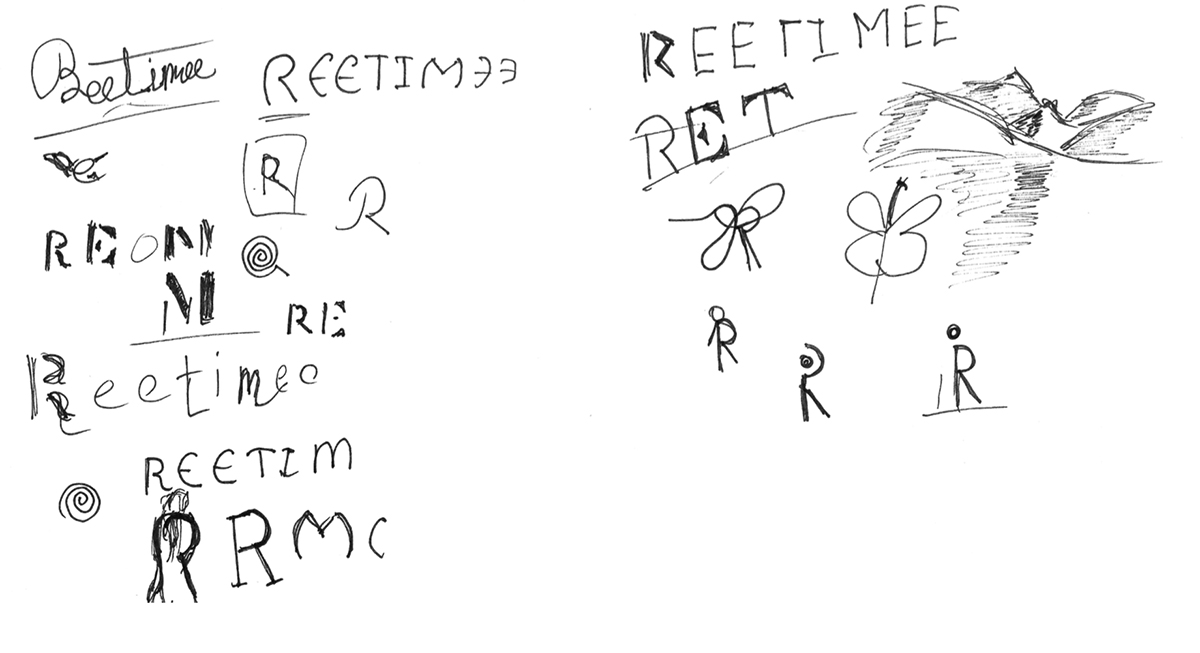 Reetimee
REETIMEE
R
R
REON
N
RE
Reetimee
REETIM
R RMC
REETIMEE
RET
R
R
R